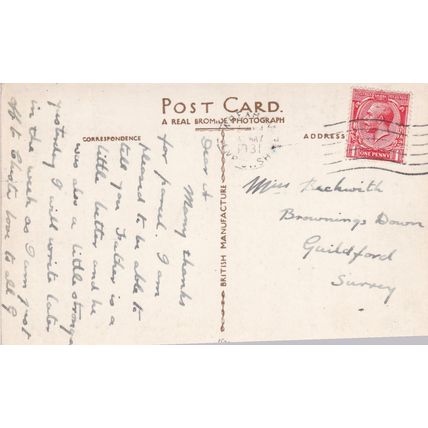 POST CARD.
A REAL BROMIDE PHOTOGRAPH
CORRESPONDENCE
ADDRESS
BRITISH MANUFACTURE
ONE PENNY
1931
Dear A
Many thanks
for parcel. I am
pleased to be able to
tell you Father is a
little better and he
was also a little stronger
yesterday I will write later
in the week as I am just
off to Love to all
Miss Beckwith
Brownings Down
Guildford
Surrey